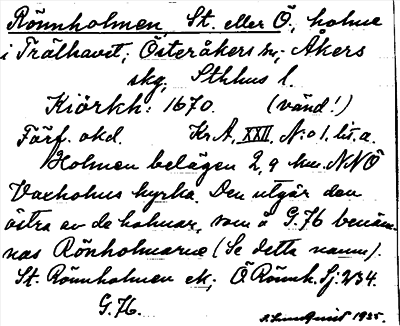 Rönnholmen St. eller Ö, holme
i Trälhavet, Österåkers sn, Åkers
skg, Sthlms l.
Kiörkh: 1670. (vänd!)
Förf. okd. Kr.A. XXII, N:o 1. lit. a.
Holmen belägen 2,9 km. NNÖ
Vaxholms kyrka. Den utgör den
östra av de holmar, som å G.76 benäm-
nas Rönholmarne (Se detta namn).
St. Rönnholmen ek, Ö Rönnh. Sj. 234.
G.76.
1935.